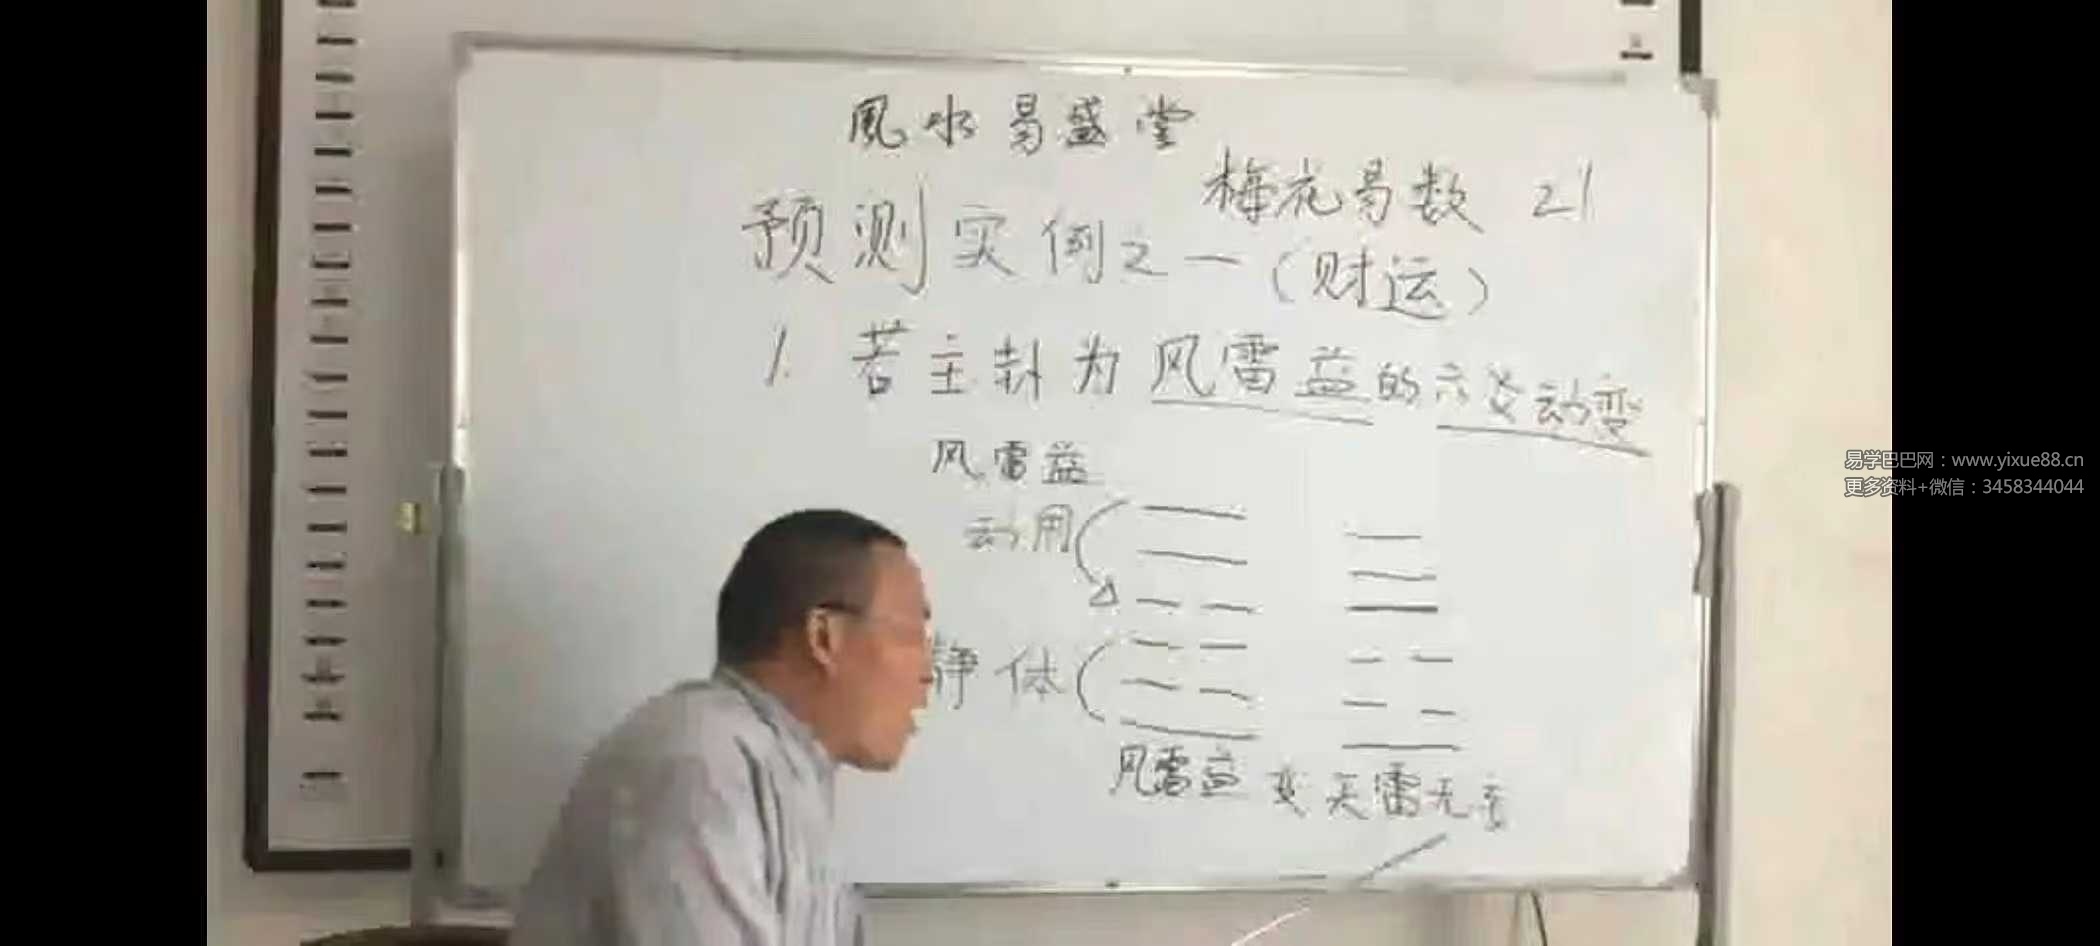 風水易盛堂
梅花易数 21
预测实例之一(财运)
1. 若主卦为风雷益的六爻动变
风雷益
动用
静体
风雷益 变 天雷无妄
易学巴巴网：www.yixue88.cn
更多资料+微信：3458344044